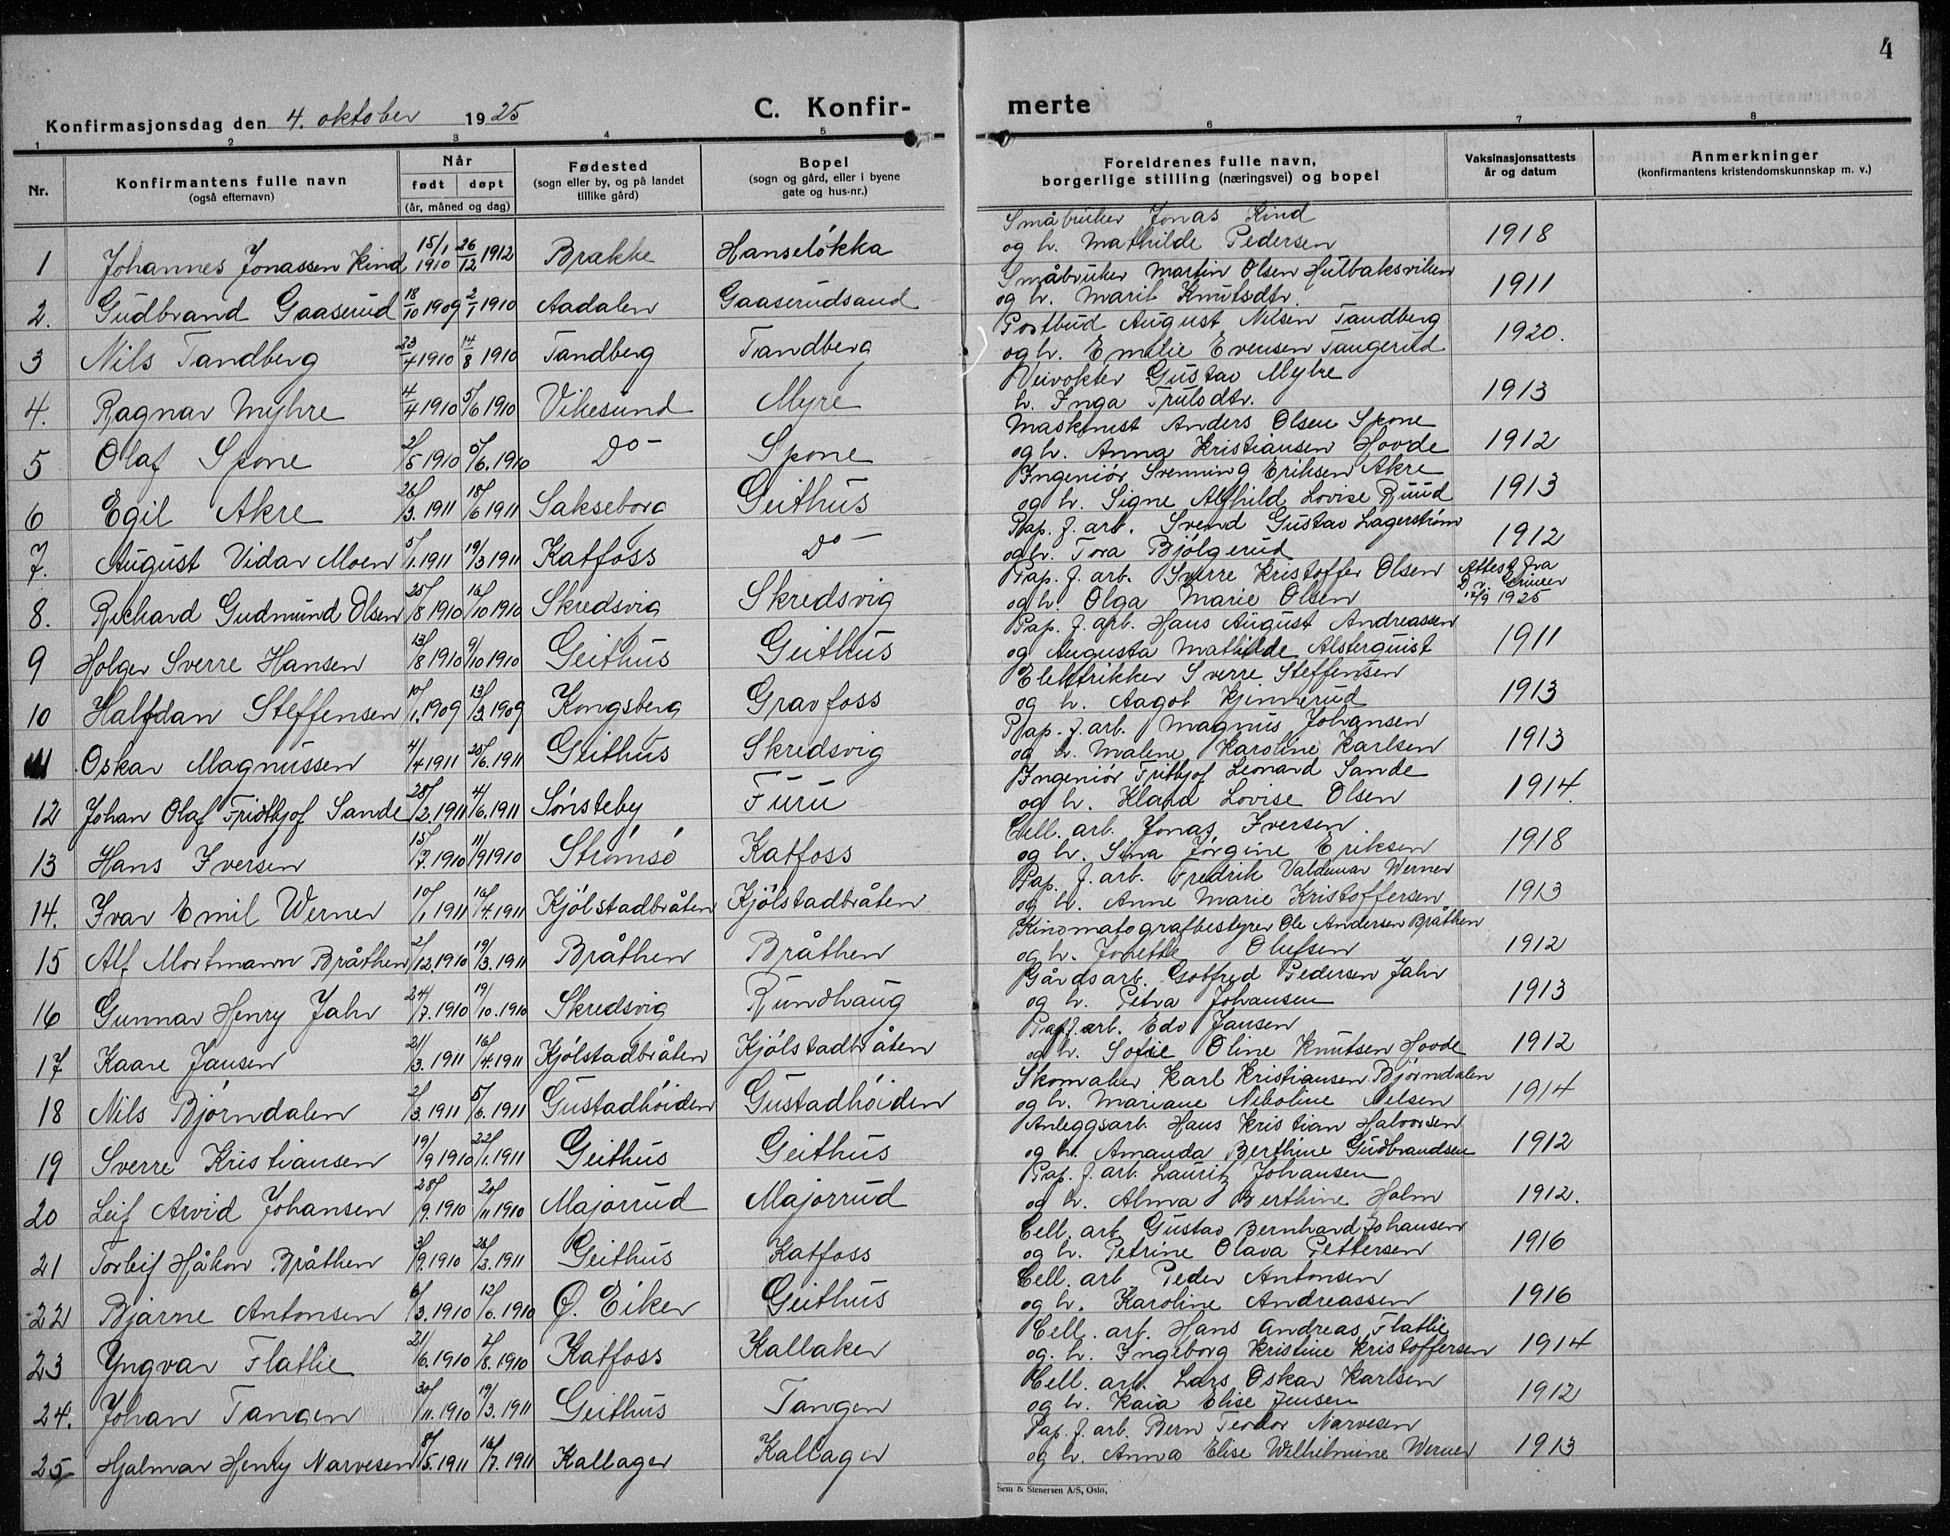 4
Konfirmasjonsdag den 4. oktober 1925
C. Konfir-
merte
1 2 3 4 5 6 7 8
Nr.
Konfirmantens fulle navn
(også efternavn)
Når
født døpt
(år, måned og dag)
Fødested
(sogn eller by, og på landet
tillike gård)
Bopel
(sogn og gård, eller i byene
gate og hus-nr.)
Foreldrenes fulle navn,
borgerlige stilling (næringsvei) og bopel
Vaksinasjonsattests
år og datum
Anmerkninger
(konfirmantens kristendomskunnskap m. v.)
1 Johannes Jonassen Kind 15/1 1910 26/12 1912 Brakke Hanseløkka
Småbruker Jonas Kind
og h. Mathilde Pedersen 1918
2. Gudbrand Gaaserud 18/10 1909 2/1 1910 Aadalen Gaaserudsand
Småbruker Martin Olsen Hulbaksviken
og h. Marit Knutsdtr. 1911
3 Nils Tandberg 23/4 1910 14/8 1910 Tandberg Tandberg
Postbud August Nilsen Tandberg
og h. Emilie Evensen Tangerud 1920.
4. Ragnar Myhre 4/4 1910 5/6 1910 Vikesund Myre
Veivokter Gustav Myhre
h. Inga Trulsdtr. 1913
5 Olaf Spone 2/5 1910 5/6. 1910 Do - Spone
Maskinist Anders Olsen Spone
og h. Anna Kristiansen Hovde 1912
6 Egil Akre 26/3. 1911 18/6 1911 Sakseborg Geithus
Ingeniør Svenning Eriksen Akre
og h. Signe Alfhild Lovise Ruud 1913
7. August Vidar Moen 5/1. 1911 19/3 1911 Katfoss Do -
Pap. f. arb. Svend Gustav Lagerstrøm
og h. Tora Bjølgerud 1912
8. Richard Gudmund Olsen 25/8 1910 16/10 1910 Skredsvig Skredsvig
Pap. f. arb. Sverre Kristoffer Olsen
og h. Olga Marie Olsen Attest fra
12/9 1925
9 Holger Sverre Hansen 13/8 1910 9/10 1910 Geithus Geithus
Pap. f. arb. Hans August Andreassen
og Augusta Mathilde Alsterquist 1911
10 Halfdan Steffensen 10/1. 1909 13/3. 1909 Kongsberg Gravfoss
Elektrikker Sverre Steffensen
og h. Aagot Kjennerud 1913
11 Oskar Magnussen 4/4 1911 25/6. 1911 Geithus Skredsvig
Pap. f. arb. Magnus Johansen
og h. Malene Karoline Karlsen 1913
12 Johan Olaf Fridthjof Sande 28/2. 1911 4/6. 1911 Sønsteby Furu
Ingeniør Frithjof Leonard Sande
og h. Klara Lovise Olsen 1914.
13 Hans Iversen 15/7. 1910 11/9 1910 Strømsø Katfoss
Cell. arb. Jonas Iversen
og h. Sina Jørgine Eriksen 1918
14. Ivar Emil Werner 10/1 1911 16/4. 1911 Kjølstadbråten Kjølstadbråten
Pap. f. arb. Fredrik Valdemar Werner
og h. Anne Marie Kristoffersen 1913
15 Alf Mortmann Bråthen 2/12. 1910 19/3. 1911 Bråthen Bråthen
Kinomatografbestyrer Ole Andersen Bråthen
og h. Jonette Olufsen 1912
16 Gunnar Henry Jahr 24/7. 1910 19/10. 1910 Skredsvig Rundhaug
Gårdsarb. Gotfred Pedersen Jahr
og h. Petra Johansen 1913
17 Kaare Jansen 21/3. 1911 16/4. 1911 Kjølstadbråten Kjølstadbråten
Papf. arb. Edv. Jansen
og h. Sofie Oline Knutsen Hovde 1912
18 Nils Bjørndalen 2/3. 1911 5/6. 1911 Gustadhøiden Gustadhøiden
Skomaker Karl Kristiansen Bjørndalen
og h. Mariane Nikoline Nelsen 1914
19 Sverre Kristiansen 19/9 1910 22/1. 1911 Geithus Geithus
Anleggsarb. Hans Kristian Halvorsen
og h. Amanda Berthine Gudbrandsen 1912
20 Leif Arvid Johansen 28/9. 1910 20/11 1910 Majorrud Majorrud
Pap. f. arb. Laurits Johansen
og h. Alma Berthine Holm 1912.
21 Torleif Håkon Bråthen 3/9. 1910 26/3. 1911 Geithus Katfoss
Cell. arb. Gustav Bernhard Johansen
og h. Petrine Olava Pettersen 1916
22 Bjarne Antonsen 6/3. 1910 12/6. 1910 Ø. Eiker Geithus
Cell. arb. Peder Antonsen
og h. Karoline Andreassen 1916
23 Yngvar Flatlie 21/6. 1910 2/8. 1910 Katfoss Kallaker
Cell. arb. Hans Andreas Flatlie
og. h. Ingeborg Kristine Kristoffersen 1914
24. Johan Tangen 30/11. 1910 19/3. 1911 Geithus Tangen
Cell. arb. Lars Oskar Karlsen
og h. Kaia Elise Jensen 1912
25 Hjalmar Henry Narvesen 8/5. 1911 16/7. 1911 Kallager Kallager
Pap. f. arb. Bern Teodor Narvesen
og h. Anna Elise Wilhelmine Werner 1913
Sem & Stenersen A/S, Oslo,